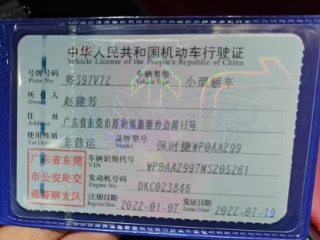 中华人民共和国机动车行驶证
Vehicle License of the People's Republic of China
号牌号码 粤S97V72 车辆类型 小型轿车
Plate No. Vehicle Type
所有人 赵建芳
Owner
住址 广东省东莞市厚街镇新塘抄边路11号
Address
使用性质 非营运 品牌型号 保时捷WP0AA299
Model
广东省东莞市公安局交通警察支队
车辆识别代号 WP0AA2997NS205261
VIN
发动机号码 DKC023846
Engine No.
注册日期 2022-01-07 发证日期 2022-07-19
Register Date Issue Date